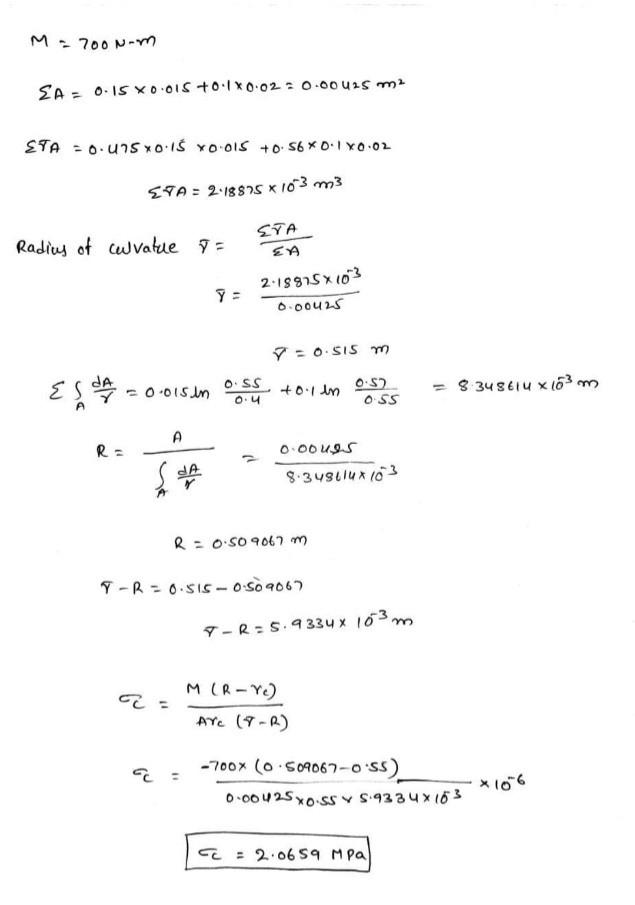 M = 700 N-m
ΣA = 0.15 x 0.015 + 0.1 x 0.02 = 0.00425 m²
Σr̄A = 0.475 x 0.15 x 0.015 + 0.56 x 0.1 x 0.02
Σr̄A = 2.18875 x 10⁻³ m³
Radius of curvature r̄ = Σr̄A / ΣA
r̄ = 2.18875 x 10⁻³ / 0.00425
r̄ = 0.515 m
Σ ∫_A dA/r = 0.015 ln 0.55/0.4 + 0.1 ln 0.57/0.55 = 8.348614 x 10⁻³ m
R = A / ∫_A dA/r = 0.00425 / 8.348614 x 10⁻³
R = 0.509067 m
r̄ - R = 0.515 - 0.509067
r̄ - R = 5.9334 x 10⁻³ m
σc = M (R - rc) / Arc (r̄ - R)
σc = -700 x (0.509067 - 0.55) / 0.00425 x 0.55 x 5.9334 x 10⁻³ x 10⁻⁶
σc = 2.0659 MPa